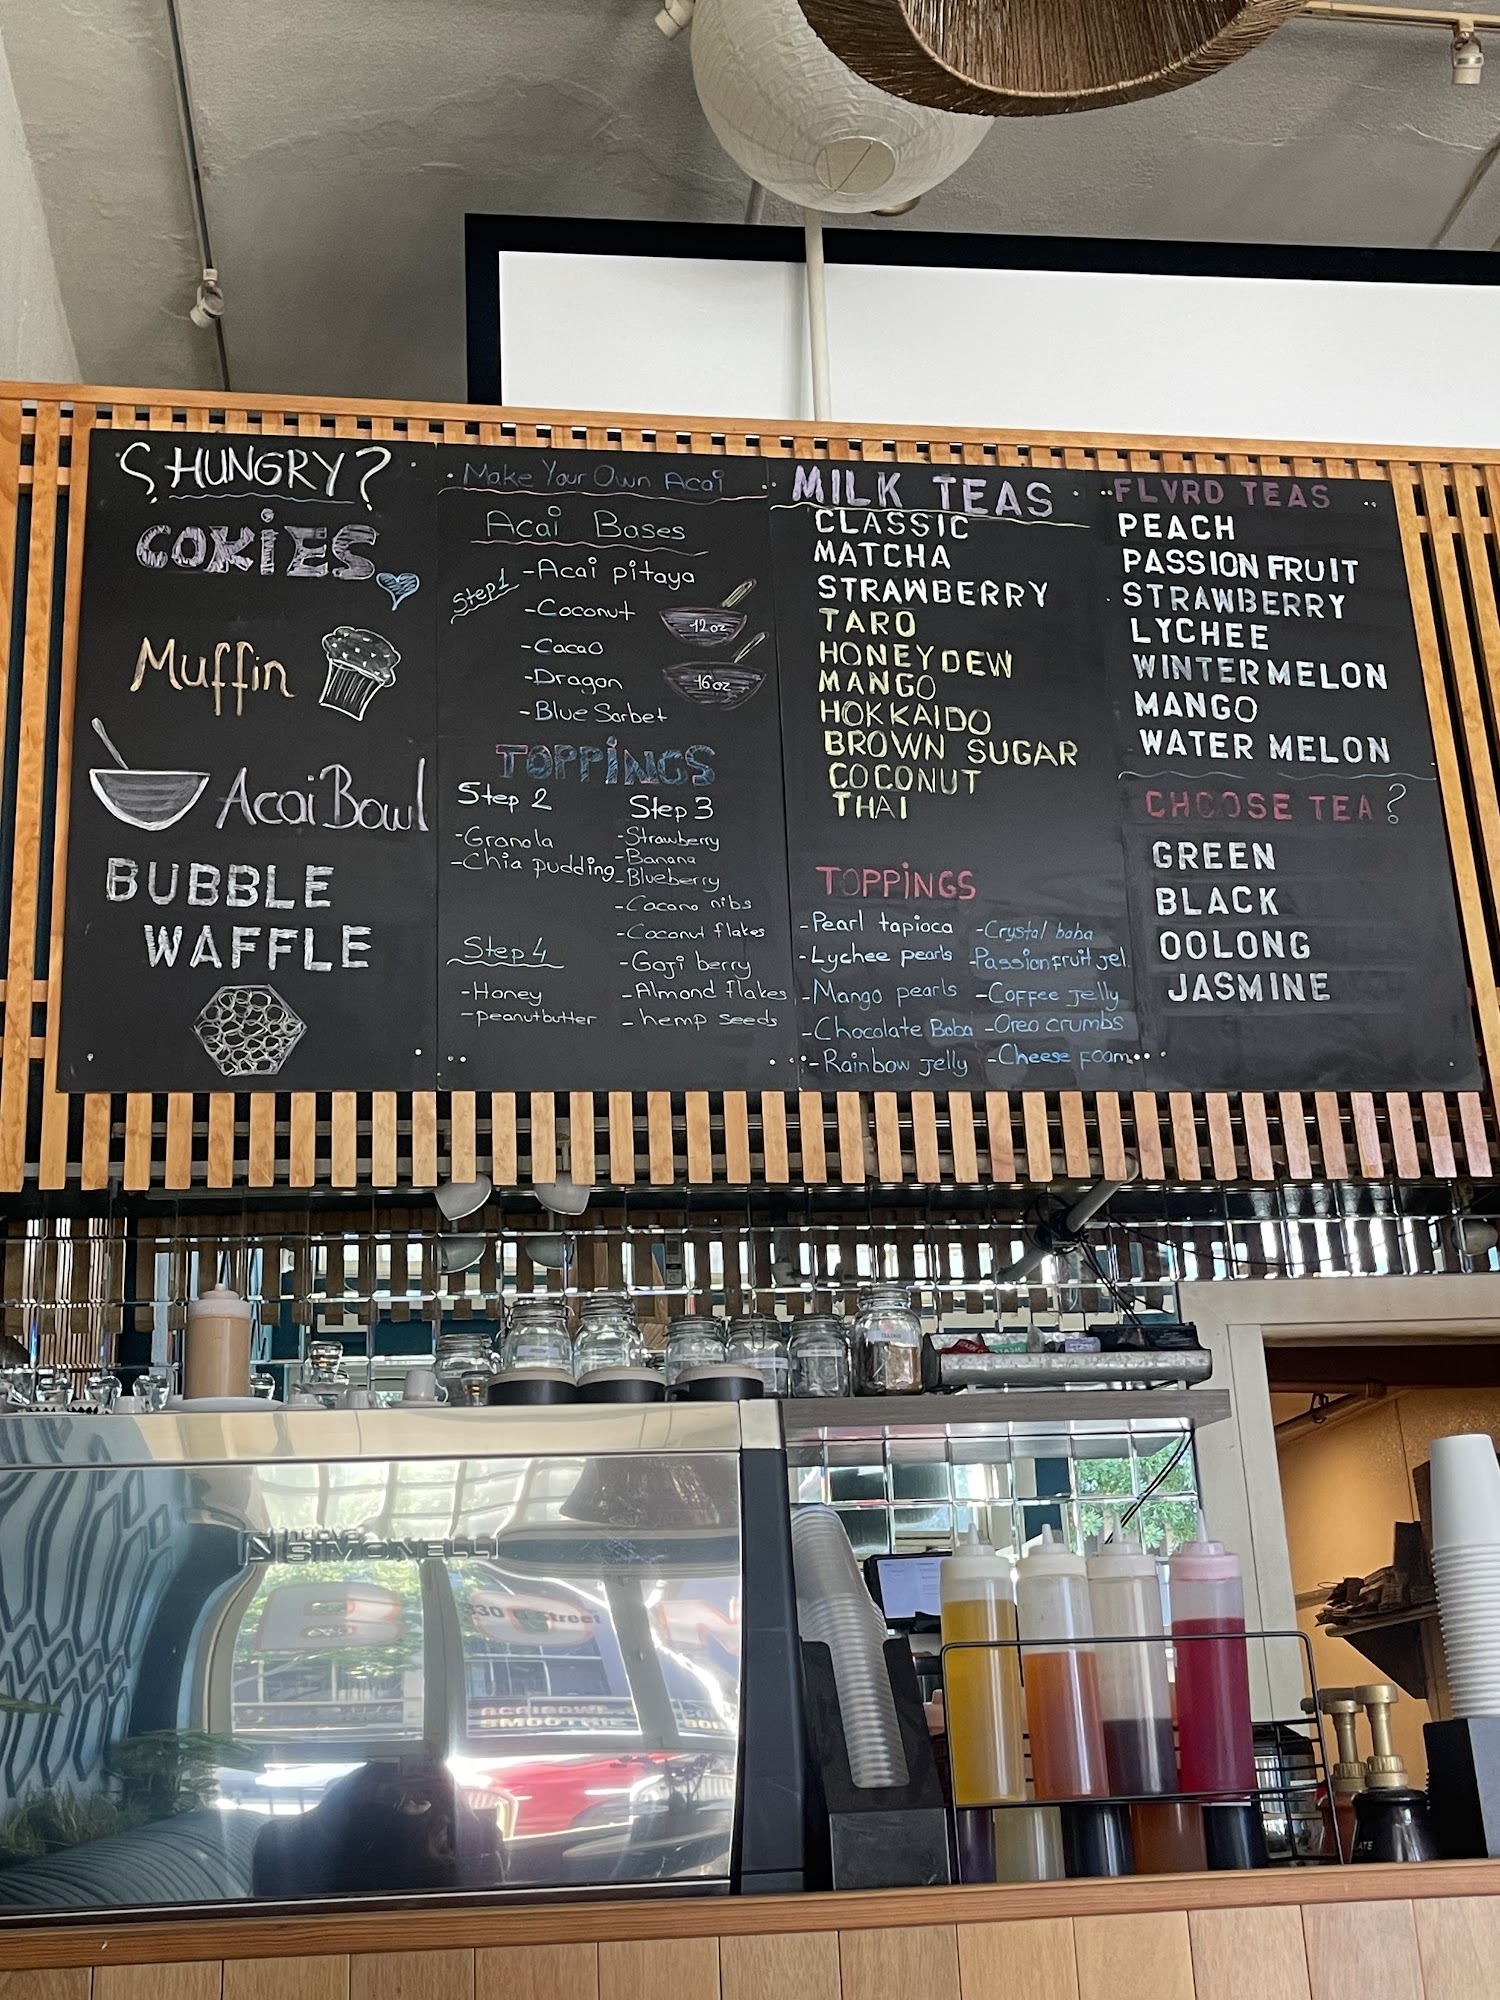 ¿HUNGRY?
COKiES
Muffin
Acai Bowl
BUBBLE
WAFFLE
Make Your Own Acai
Acai Bases
Step 1
-Acai pitaya
-Coconut
-Cacao
-Dragon
-Blue Sorbet
12oz
16oz
TOPPiNGS
Step 2
-Granola
-Chia pudding
Step 3
-Strawberry
-Banana
-Blueberry
-Cacano nibs
-Coconut flakes
-Goji berry
-Almond flakes
-hemp seeds
Step 4
-Honey
-peanutbutter
MILK TEAS
CLASSIC
MATCHA
STRAWBERRY
TARO
HONEYDEW
MANGO
HOKKAIDO
BROWN SUGAR
COCONUT
THAI
TOPPiNGS
-Pearl tapioca
-Lychee pearls
-Mango pearls
-Chocolate Boba
-Rainbow jelly
-Crystal boba
-Passionfruit jel
-Coffee jelly
-Oreo crumbs
-Cheese foam
FLVRD TEAS
PEACH
PASSION FRUIT
STRAWBERRY
LYCHEE
WINTERMELON
MANGO
WATER MELON
CHOOSE TEA?
GREEN
BLACK
OOLONG
JASMINE
nuova
SIMONELLI